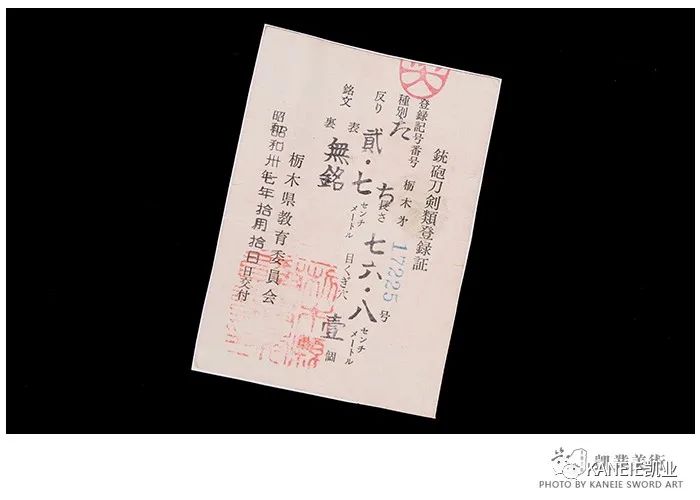 銃砲刀剣類登録証
登録記号番号 栃木才 17225号
種別 たち 長さ 七六・八センチメートル
反り 貳・七センチメートル 目くぎ穴 壹個
銘文 表 無銘
裏
昭和卅七年拾月拾日交付
栃木県教育委員会
KANEIE凯业
PHOTO BY KANEIE SWORD ART